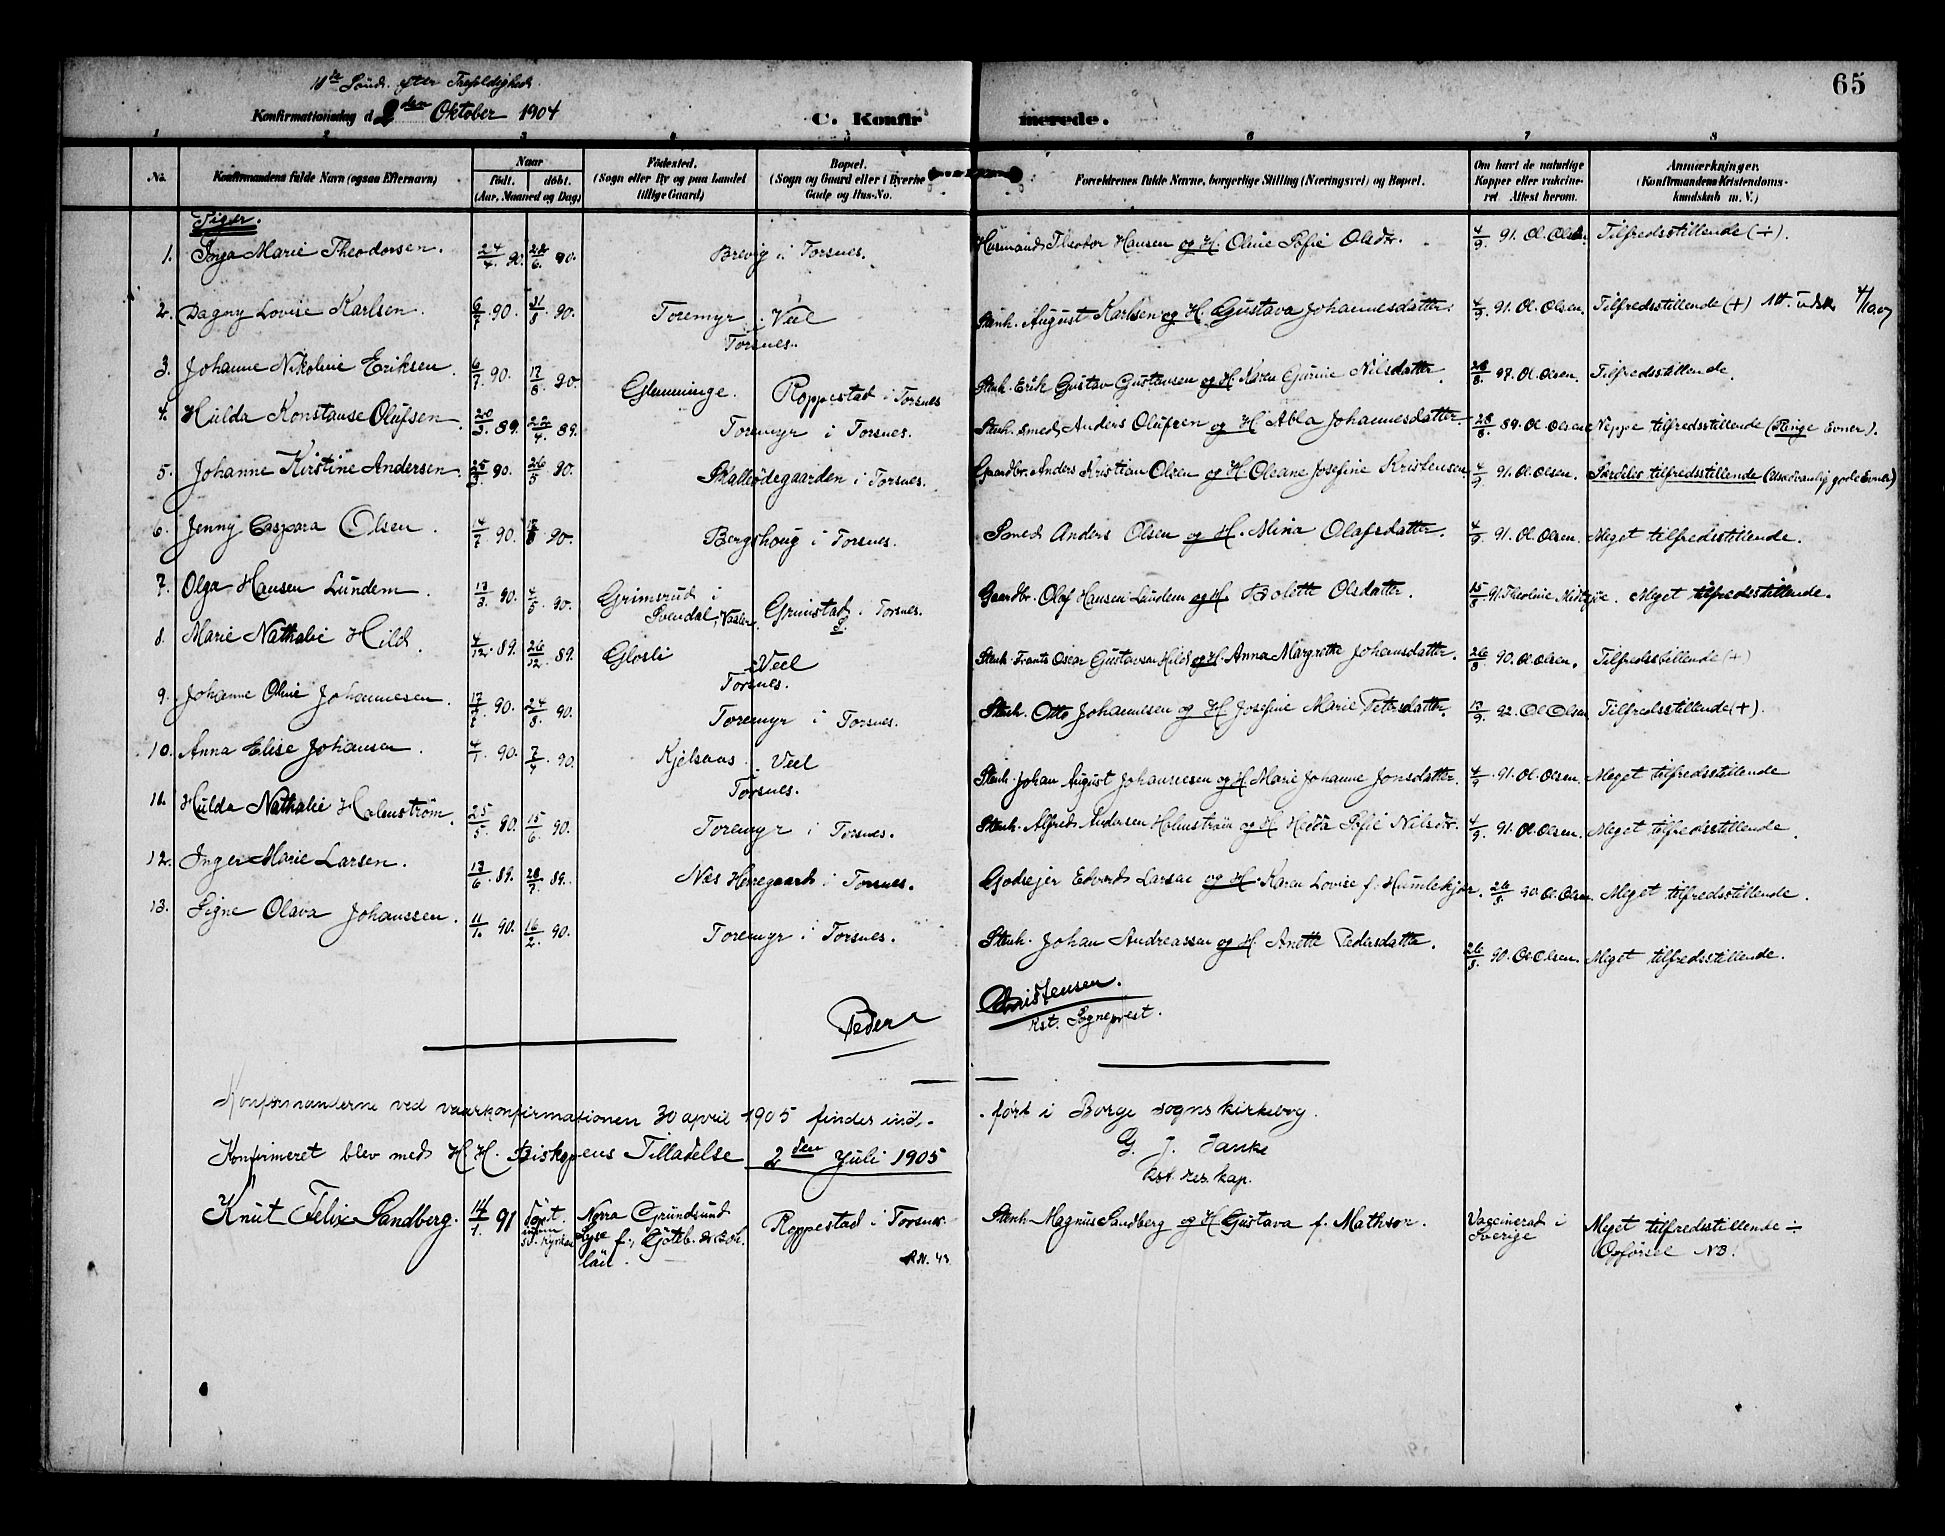 65
18de Sönd. efter Trefoldighed.
Konfirmationsdag d. 2den Oktober 1904
C. Konfirmerede.
1 2 3 4 5 6 7 8
No. Konfirmandens fulde Navn (ogsaa Efternavn) Naar født. døbt. (Aar, Maaned og Dag) Fødested. (Sogn eller By og paa Landet tillige Gaard) Bopæl. (Sogn og Gaard eller i Byerne Gade og Hus-No. Forældrenes fulde Navne, borgerlige Stilling (Næringsvei) og Bopæl. Om havt de naturlige Kopper eller vakcineret. Attest herom. Anmærkninger. (Konfirmandens Kristendomskundskab m. V.)
Piger.
1. Inga Marie Theodorsen. 24/4 90. 22/6 90. Brevig i Torsnes. Husmand Theodor Hansen og H. Oline Sofie Olsdtr. 4/9 91. Ol. Olsen. Tilfredsstillende (÷).
2. Dagny Lovise Karlsen. 6/7 90. 31/8 90. Toremyr i Veel Torsnes. Stenh. August Karlsen og H. Gustava Johannesdatter. 4/9 91. Ol. Olsen. Tilfredsstillende (+) Att. udst. 4/10.07
3. Johanne Nikoline Eriksen. 6/7 90. 17/8 90. Glemminge. Roppestad i Torsnes Stenh. Erik Gustav Gustavsen og H. Karen Gurine Nilsdatter. 26/8 97. Ol. Olsen. Tilfredsstillende.
4. Hulda Konstanse Olufsen. 20/3 89. 22/4 89. Toremyr i Torsnes. Stenh. smed Anders Olufsen og H. Abla Johannesdatter. 28/8 89. Ol. Olsen Neppe tilfredsstillende (Ringe Evner).
5. Johanne Kirstine Andersen. 25/3 90. 26/5 90. Skallødegaarden i Torsnes. Gaardbr. Anders Kristian Olsen og H. Oleane Josefine Kristensen. 4/9 91. Ol. Olsen. Særdeles tilfredsstillende (Usædvanlig gode Evner)
6. Jenny Caspara Olsen. 14/7 90. 17/8 90. Bergshoug i Torsnes. Smed Anders Olsen og H. Mina Olafsdatter. 4/9 91. Ol. Olsen. Meget tilfredsstillende.
7. Olga Hansen Lundem. 13/3 90. 4/5 90. Grimsrud i Svendal, Vaaler. Grimstad S. i Torsnes. Gaardbr. Olaf Hansen Lundem og H. Bolette Olsdatter. 15/8 91 Theoline Meget tilfredsstillende.
8. Marie Nathalie Hild. 4/12 89. 26/12 89. Glosli i Veel Torsnes. Stenh. Frants Oscar Gustavsen Hild og H. Anna Margrethe Johansdatter. 26/8 90. Ol. Olsen. Tilfredsstillende (+)
9. Johanne Oline Johannesen. 17/7 90. 24/8 90. Toremyr i Torsnes. Stenh. Otto Johannesen og H. Josefine Marie Petersdatter. 13/9 92. Ol Olsen Tilfredsstillende (+).
10. Anna Elise Johansen. 4/1 90. 7/4 90. Kjølsaas i Veel Torsnes. Stenh. Johan August Johannesen og H. Marie Johanne Jonsdatter. 4/9 91. Ol. Olsen. Meget tilfredsstillende
11. Hulda Nathalie Holmström. 25/5 90. 15/6 90. Toremyr i Torsnes. Stenh. Alfred Andersen Holmström og H. Hedda Sofie Nilsdtr. 4/9 91. Ol. Olsen. Meget tilfredsstillende.
12. Inger Marie Larsen. 13/6 89. 28/7 89. Næs Herregaard i Torsnes. Godsejer Edvard Larsen og H. Karen Lovise f. Humlekjær. 26/8 90. Ol. Olsen Meget tilfredsstillende.
13. Signe Olava Johanssen. 11/1 90. 16/2 90. Toremyr i Torsnes. Stenh. Johan Andreassen og H. Anette Pedersdatter. 26/8 90. Ol. Olsen. Meget tilfredsstillende.
Peder Christensen.
kst. Sogneprest.
Konfirmanderne ved vaarkonfirmationen 30 april 1905 findes indført i Borge sogns kirkebog.
G. J. Janke
kst. res. kap.
Konfirmeret blev med H. H. Biskopens Tilladelse 2den Juli 1905
Knut Felix Sandberg. 91 döpt. inom sv. kyrkan Norra Grundsund Lyse f., Göteb. & Boh. län. Roppestad i Torsnes. Stenh. Magnus Sandberg og H. Gustava f. Mathson. Vaccinerad i Sverige Meget tilfredsstillende ÷ Opførsel NB!